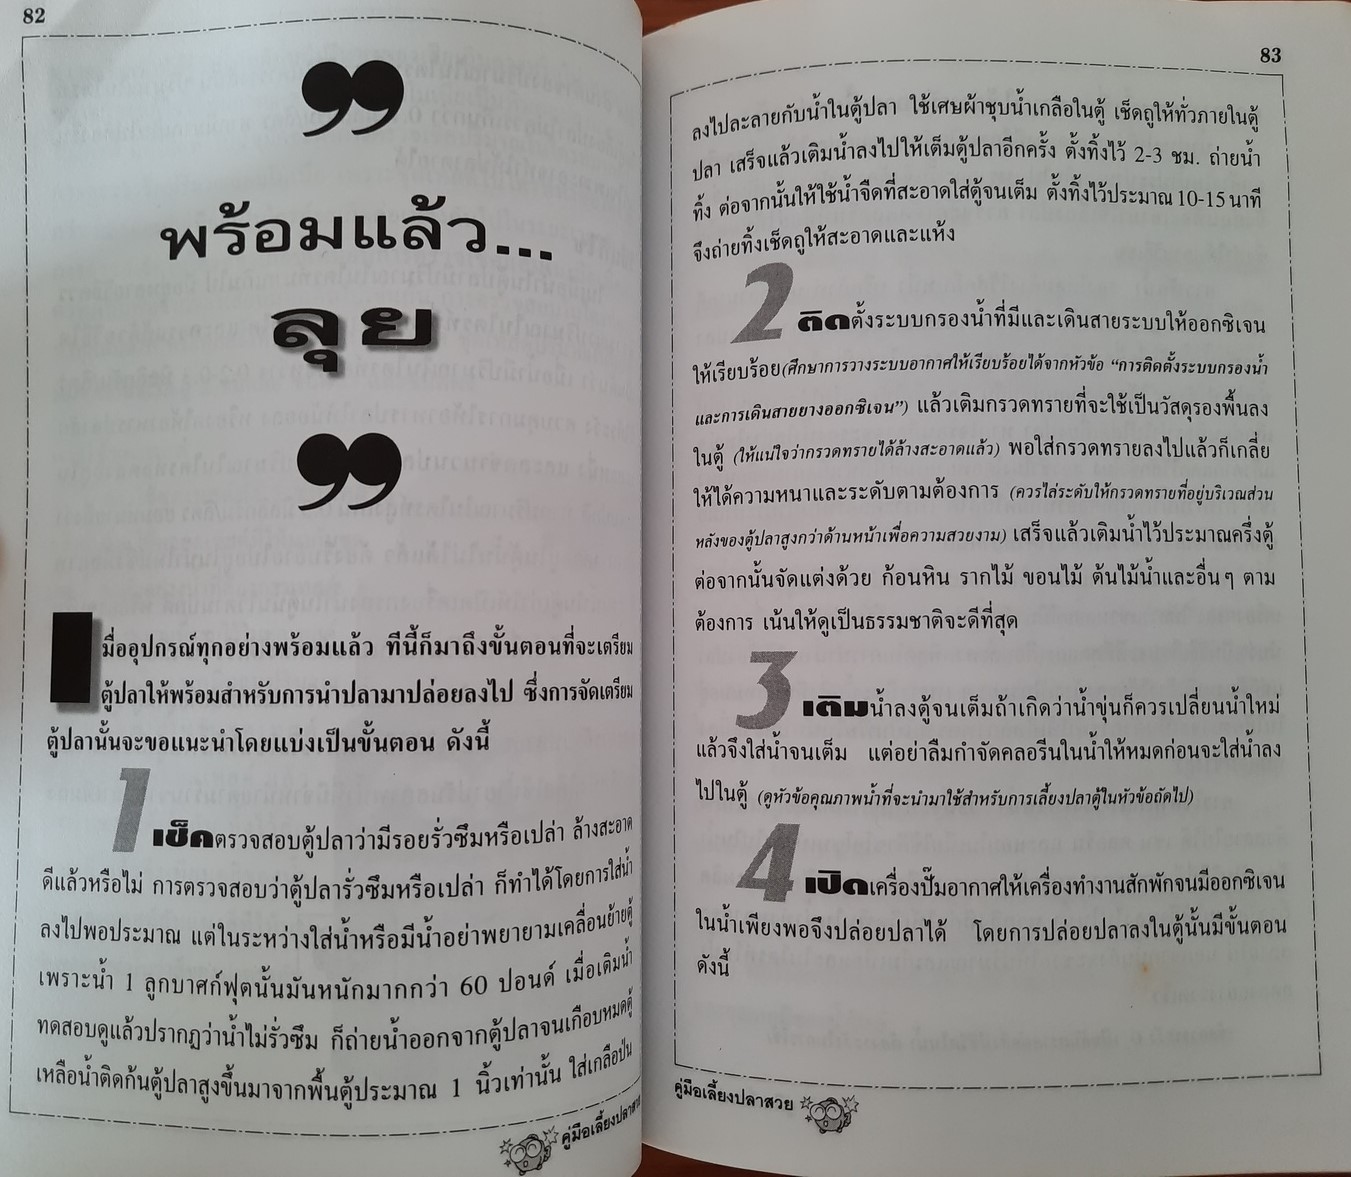 82
”
พร้อมแล้ว...
ลุย
”
เมื่ออุปกรณ์ทุกอย่างพร้อมแล้ว ทีนี้ก็มาถึงขั้นตอนที่จะเตรียม
ตู้ปลาให้พร้อมสำหรับการนำปลามาปล่อยลงไป ซึ่งการจัดเตรียม
ตู้ปลานั้นจะขอแนะนำโดยแบ่งเป็นขั้นตอน ดังนี้
1 เช็คตรวจสอบตู้ปลาว่ามีรอยรั่วซึมหรือเปล่า ล้างสะอาด
ดีแล้วหรือไม่ การตรวจสอบว่าตู้ปลารั่วซึมหรือเปล่า ก็ทำได้โดยการใส่น้ำ
ลงไปพอประมาณ แต่ในระหว่างใส่น้ำหรือมีน้ำอย่าพยายามเคลื่อนย้ายตู้
เพราะน้ำ 1 ลูกบาศก์ฟุตนั้นมันหนักมากกว่า 60 ปอนด์ เมื่อเติมน้ำ
ทดสอบดูแล้วปรากฏว่าน้ำไม่รั่วซึม ก็ถ่ายน้ำออกจากตู้ปลาจนเกือบหมดตู้
เหลือน้ำติดก้นตู้ปลาสูงขึ้นมาจากพื้นตู้ประมาณ 1 นิ้วเท่านั้น ใส่เกลือป่น
คู่มือเลี้ยงปลาสวย
83
ลงไปละลายกับน้ำในตู้ปลา ใช้เศษผ้าชุบน้ำเกลือในตู้ เช็ดถูให้ทั่วภายในตู้
ปลา เสร็จแล้วเติมน้ำลงไปให้เต็มตู้ปลาอีกครั้ง ตั้งทิ้งไว้ 2-3 ชม. ถ่ายน้ำ
ทิ้ง ต่อจากนั้นให้ใช้น้ำจืดที่สะอาดใส่ตู้จนเต็ม ตั้งทิ้งไว้ประมาณ 10-15 นาที
จึงถ่ายทิ้งเช็ดถูให้สะอาดและแห้ง
2 ติดตั้งระบบกรองน้ำที่มีและเดินสายระบบให้ออกซิเจน
ให้เรียบร้อย(ศึกษาการวางระบบอากาศให้เรียบร้อยได้จากหัวข้อ “การติดตั้งระบบกรองน้ำ
และการเดินสายยางออกซิเจน”) แล้วเติมกรวดทรายที่จะใช้เป็นวัสดุรองพื้นลง
ในตู้ (ให้แน่ใจว่ากรวดทรายได้ล้างสะอาดแล้ว) พอใส่กรวดทรายลงไปแล้วก็เกลี่ย
ให้ได้ความหนาและระดับตามต้องการ (ควรไล่ระดับให้กรวดทรายที่อยู่บริเวณส่วน
หลังของตู้ปลาสูงกว่าด้านหน้าเพื่อความสวยงาม) เสร็จแล้วเติมน้ำไว้ประมาณครึ่งตู้
ต่อจากนั้นจัดแต่งด้วย ก้อนหิน รากไม้ ขอนไม้ ต้นไม้น้ำและอื่นๆ ตาม
ต้องการ เน้นให้ดูเป็นธรรมชาติจะดีที่สุด
3 เติมน้ำลงตู้จนเต็มถ้าเกิดว่าน้ำขุ่นก็ควรเปลี่ยนน้ำใหม่
แล้วจึงใส่น้ำจนเต็ม แต่อย่าลืมกำจัดคลอรีนในน้ำให้หมดก่อนจะใส่น้ำลง
ไปในตู้ (ดูหัวข้อคุณภาพน้ำที่จะนำมาใช้สำหรับการเลี้ยงปลาตู้ในหัวข้อถัดไป)
4 เปิดเครื่องปั๊มอากาศให้เครื่องทำงานสักพักจนมีออกซิเจน
ในน้ำเพียงพอจึงปล่อยปลาได้ โดยการปล่อยปลาลงในตู้นั้นมีขั้นตอน
ดังนี้
คู่มือเลี้ยงปลาสวย